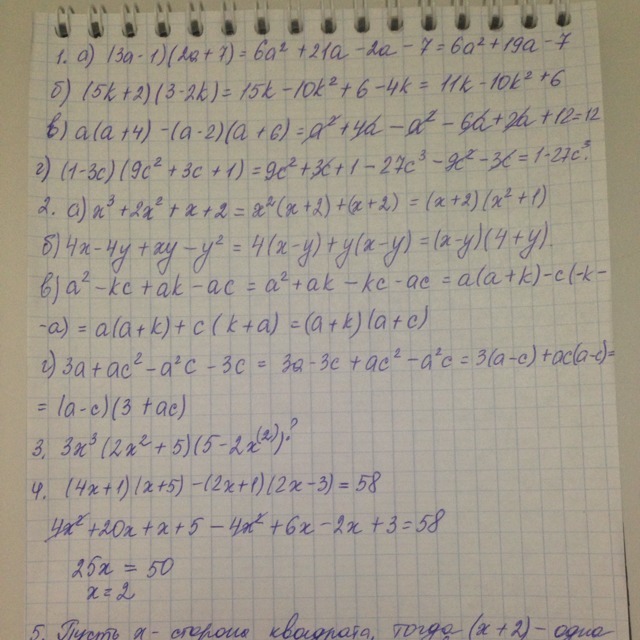 1. а) (3a-1)(2a+7) = 6a² + 21a - 2a - 7 = 6a² + 19a - 7
б) (5k+2)(3-2k) = 15k - 10k² + 6 - 4k = 11k - 10k² + 6
в) a(a+4) - (a-2)(a+6) = a² + 4a - a² - 6a + 2a + 12 = 12
г) (1-3c)(9c² + 3c + 1) = 9c² + 3c + 1 - 27c³ - 9c² - 3c = 1 - 27c³.
2. а) x³ + 2x² + x + 2 = x²(x+2) + (x+2) = (x+2)(x²+1)
б) 4x - 4y + xy - y² = 4(x-y) + y(x-y) = (x-y)(4+y)
в) a² - kc + ak - ac = a² + ak - kc - ac = a(a+k) - c(-k-
-a) = a(a+k) + c(k+a) = (a+k)(a+c)
г) 3a + ac² - a²c - 3c = 3a - 3c + ac² - a²c = 3(a-c) + ac(a-c) =
= (a-c)(3+ac)
3. 3x³(2x² + 5)(5 - 2x⁽²⁾)?
4. (4x+1)(x+5) - (2x+1)(2x-3) = 58
4x² + 20x + x + 5 - 4x² + 6x - 2x + 3 = 58
25x = 50
x = 2
5. Пусть x - сторона квадрата, тогда (x+2) - одна